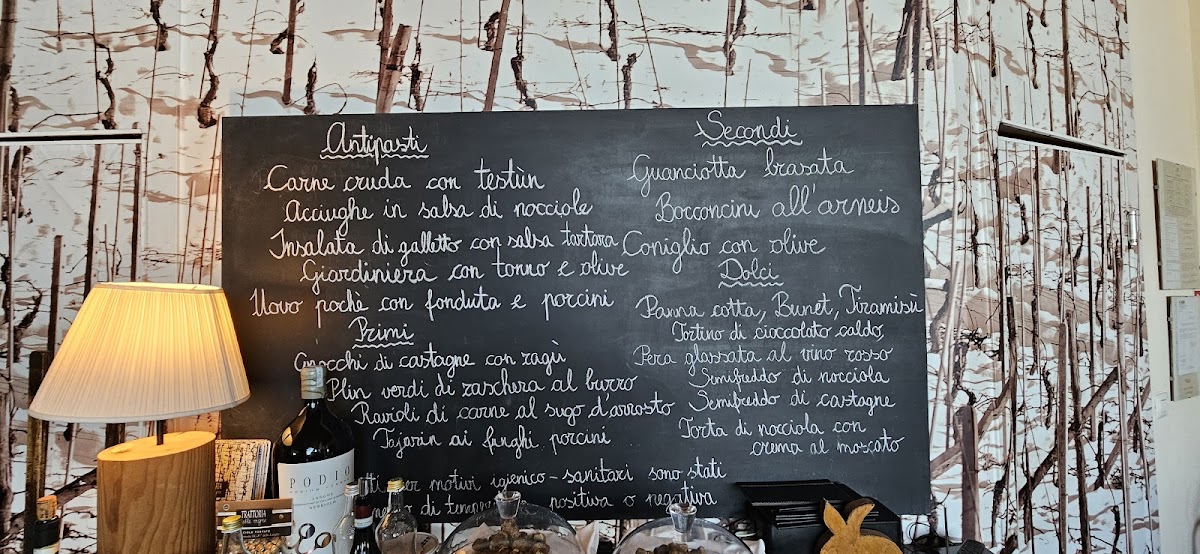 Antipasti
Carne cruda con testùn
Acciughe in salsa di nocciole
Insalata di galletto con salsa tartara
Giardiniera con tonno e olive
Uovo pochè con fonduta e porcini
Primi
Gnocchi di castagne con ragù
Plin verdi di zaschera al burro
Ravioli di carne al sugo d'arrosto
Tajarin ai funghi porcini
motivi igienico-sanitari sono stati
di positiva o negativa
Secondi
Guanciotta brasata
Bocconcini all'arneis
Coniglio con olive
Dolci
Panna cotta, Bunet, Tiramisù
Tortino di cioccolato caldo,
Pera glassata al vino rosso
Semifreddo di nocciola
Semifreddo di castagne
Torta di nocciola con
crema al moscato
PODIO
TRATTORIA